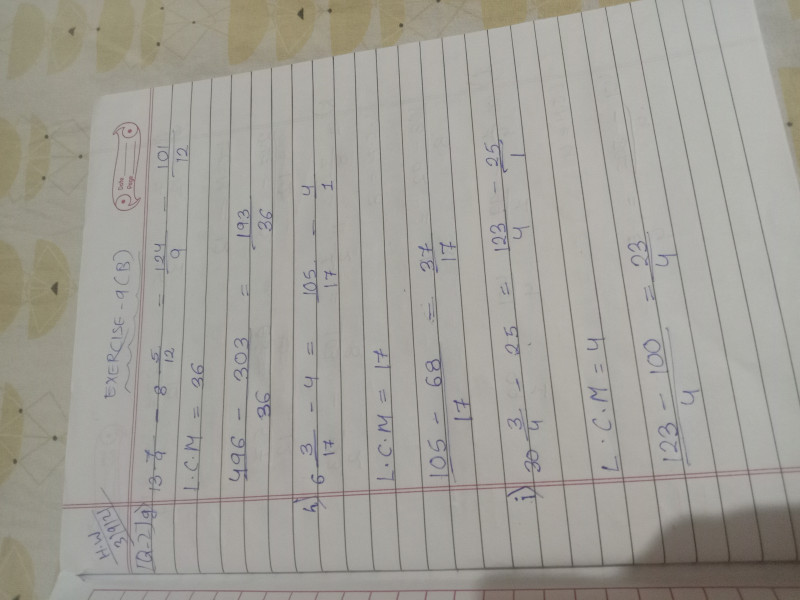 EXERCISE-9(B)
Date
Page
H.W
Q-2 g) 13 7/9 - 8 5/12 = 124/9 - 101/12
L.C.M = 36
496 - 303/36 = 193/36
h) 6 3/17 - 4 = 105/17 - 4/1
L.C.M = 17
105 - 68/17 = 37/17
i) 30 3/4 - 25 = 123/4 - 25/1
L.C.M = 4
123 - 100/4 = 23/4